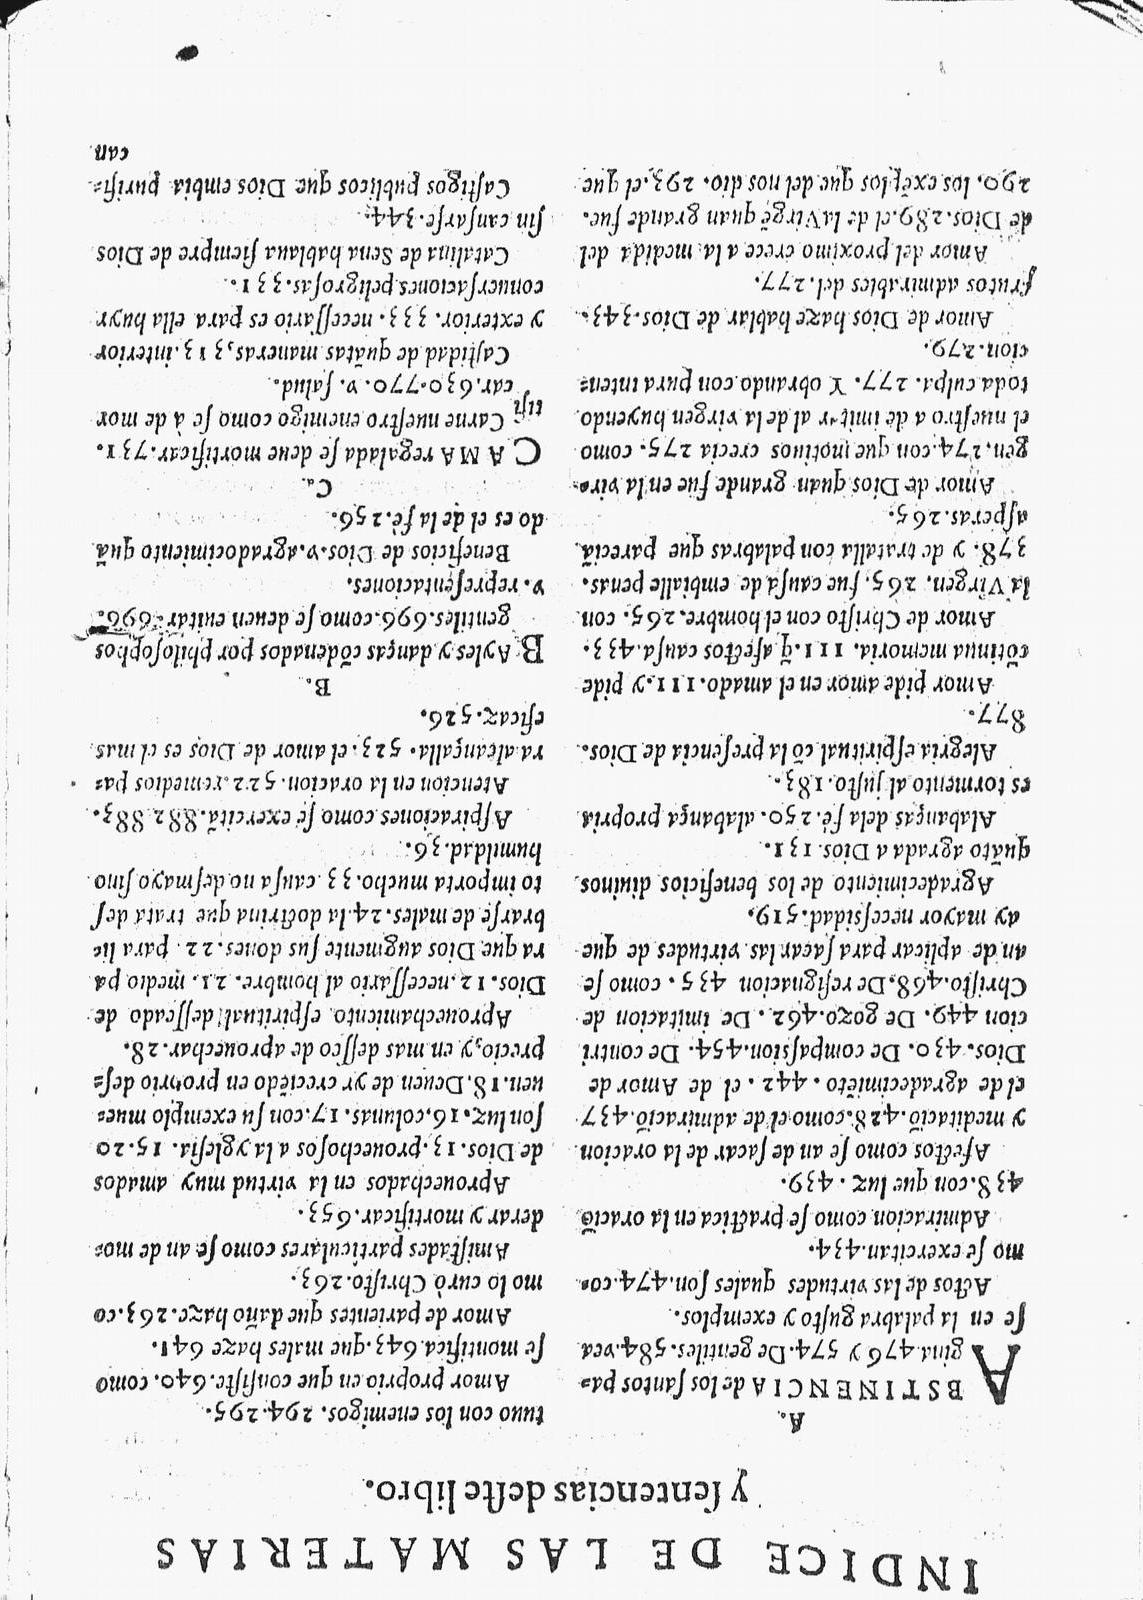 INDICE DE LAS MATERIAS
y ſentencias deſte libro.
A.
ABSTINENCIA de los ſantos pa-
gina 476 y 574. De gentiles. 584. vea
ſe en la palabra guſto y exemplos.
Actos de las virtudes quales ſon. 474. co-
mo ſe exercitan. 434.
Admiracion como ſe practica en la oraciō
438. con que luz. 439.
Afectos como ſe an de ſacar de la oracion
y meditaciō. 428. como el de admiraciō. 437
el de agradecimiēto. 442. el de Amor de
Dios. 430. De compaſsion. 454. De contri
cion 449. De gozo. 462. De imitacion de
Chriſto. 468. De reſignacion 435. como ſe
an de aplicar para ſacar las virtudes de que
ay mayor neceſsidad. 519.
Agradecimiento de los beneficios diuinos
quāto agrada a Dios. 131.
Alabanças dela fé. 250. alabança propria
es tormento al juſto. 183.
Alegria eſpiritual cō la preſencia de Dios.
877.
Amor pide amor en el amado. 111. y pide
cōtinua memoria. 111. q̄ afectos cauſa. 433.
Amor de Chriſto con el hombre. 265. con
la Virgen. 265. fue cauſa de embialle penas.
378. y de tratalla con palabras que parecīa
aſperas. 265.
Amor de Dios quan grande fue en la vir-
gen. 274. con que motiuos crecia 275. como
el nueſtro a de imitar al de la virgen huyendo
toda culpa. 277. Y obrando con pura inten-
cion. 279.
Amor de Dios haze hablar de Dios. 343.
frutos admirables del. 277.
Amor del proximo crece a la medida del
de Dios. 289. el de la Virgē quan grande fue.
290. los exēplos que del nos dio. 293. el que
tuuo con los enemigos. 294. 295.
Amor proprio en que conſiſte. 640. como
ſe mortifica. 643. que males haze 641.
Amor de parientes que daño haze. 263. co
mo lo curò Chriſto. 263.
Amiſtades particulares como ſe an de mo-
derar y mortificar. 653.
Aprouechados en la virtud muy amados
de Dios. 13. prouechoſos a la ygleſia. 15. 20
ſon luz. 16. colunas. 17. con ſu exemplo mue-
uen. 18. Deuen de yr creciēdo en proprio deſ-
precio, y en mas deſſeo de aprouechar. 28.
Aprouechamiento eſpiritual deſſeado de
Dios. 12. neceſſario al hombre. 21. medio pa
ra que Dios augmente ſus dones. 22. para li
brarſe de males. 24. la doctrina que trata deſ
to importa mucho. 33. cauſa no deſmayo ſino
humildad. 36.
Aſpiraciones como ſe exercitā. 882 883.
Atencion en la oracion. 522. remedios pa-
ra alcançalla. 523. el amor de Dios es el mas
eficaz. 526.
B.
BAyles y danças cōdenados por philoſophos
gentiles. 696. como ſe deuen euitar. 696.
v. repreſentaciones.
Beneficios de Dios. v. agradocimiento quā
do es el de la fè. 256.
Ca.
CAMA regalada ſe deue mortificar. 731.
Carne nueſtro enemigo como ſe à de mor
tifi
car. 630. 770. v. ſalud.
Caſtidad de quātas maneras, 313. interior
y exterior. 333. neceſſario es para ella huyr
conuerſaciones peligroſas. 331.
Catalina de Sena hablaua ſiempre de Dios
ſin canſarſe. 344.
Caſtigos publicos que Dios embia purifi-
can